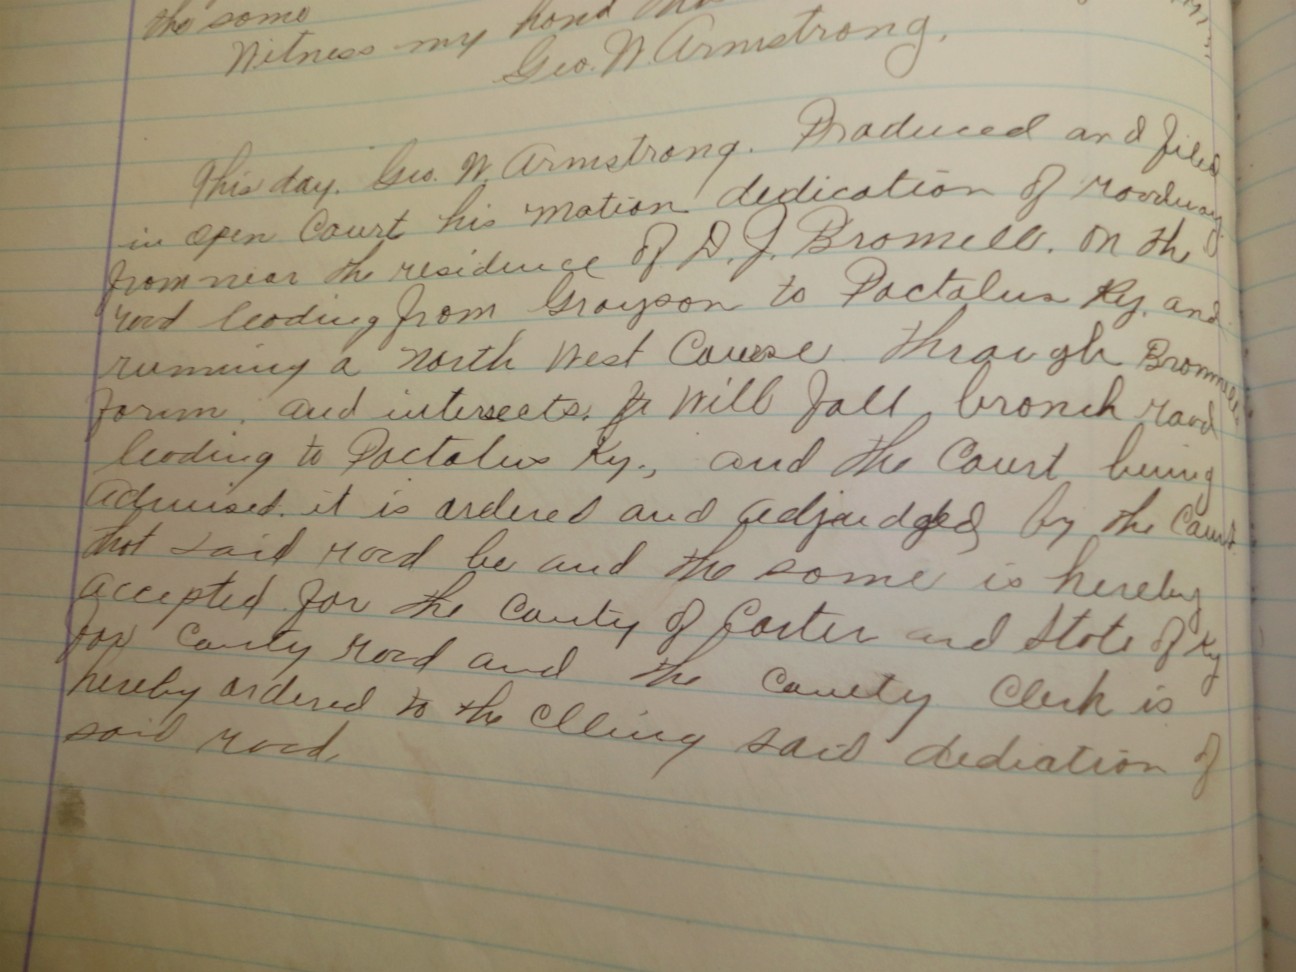 the same
Witness my hand this
Geo. W. Armstrong.
This day. Geo. W. Armstrong. Produced and filed
in open Court his motion dedication of roadway
from near the residence of D. J. Bromell. on the
road leading from Grayson to Pactolus Ky. and
running a North West Course through Bromells
farm, and intersects. Will fall branch road
leading to Pactolus Ky., and the Court being
advised. it is ordered and adjudged by the Court
that said road be and the same is hereby
accepted for the County of Carter and State of Ky
for County road and the County Clerk is
hereby ordered to the said dediation of
said road.